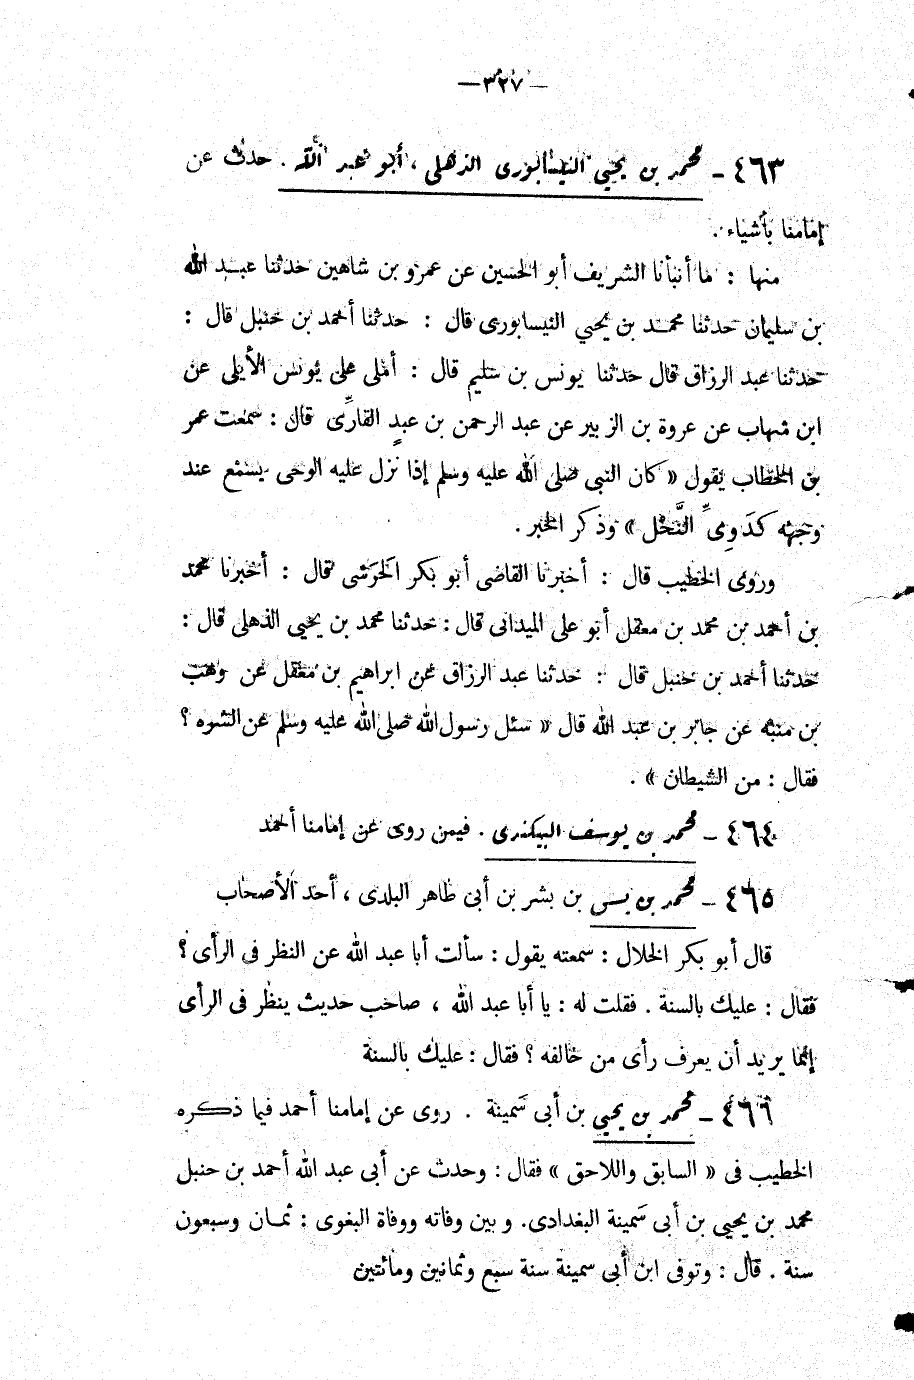 — ٣٢٧ —
٤٦٣ - محمد بن يحيى النيسابورى الذهلى ، أبو عبد الله . حدث عن
إمامنا بأشياء .
منها : ما أنبأنا الشريف أبو الحسين عن عمرو بن شاهين حدثنا عبد الله
بن سليمان حدثنا محمد بن يحيى النيسابورى قال : حدثنا أحمد بن حنبل قال :
حدثنا عبد الرزاق قال حدثنا يونس بن سليم قال : أملى على يونس الأيلى عن
ابن شهاب عن عروة بن الزبير عن عبد الرحمن بن عبدٍ القارِّى قال : سمعت عمر
بن الخطاب يقول « كان النبى صلى الله عليه وسلم إذا نزل عليه الوحى يسمع عند
وجهه كدَوِىِّ النَّحْل » وذكر الخبر .
وروى الخطيب قال : أخبرنا القاضى أبو بكر الحَرَشى قال : أخبرنا محمد
بن أحمد بن محمد بن معقل أبو على الميدانى قال : حدثنا محمد بن يحيى الذهلى قال :
حدثنا أحمد بن حنبل قال : حدثنا عبد الرزاق عن ابراهيم بن معقل عن وهب
بن منبه عن جابر بن عبد الله قال « سئل رسول الله صلى الله عليه وسلم عن النشوه ؟
فقال : من الشيطان » .
٤٦٤ - محمد بن يوسف البيكندى . فيمن روى عن إمامنا أحمد
٤٦٥ - محمد بن يسى بن بشر بن أبى طاهر البلدى ، أحد الأصحاب
قال أبو بكر الخلال : سمعته يقول : سألت أبا عبد الله عن النظر فى الرأى ؟
فقال : عليك بالسنة . فقلت له : يا أبا عبد الله ، صاحب حديث ينظر فى الرأى
إنما يريد أن يعرف رأى من خالفه ؟ فقال : عليك بالسنة
٤٦٦ - محمد بن يحيى بن أبى سَمينة . روى عن إمامنا أحمد فيما ذكره
الخطيب فى « السابق واللاحق » فقال : وحدث عن أبى عبد الله أحمد بن حنبل
محمد بن يحيى بن أبى سَمينة البغدادى. وبين وفاته ووفاة البغوى : ثمان وسبعون
سنة . قال : وتوفى ابن أبى سمينة سنة سبع وثمانين ومائتين